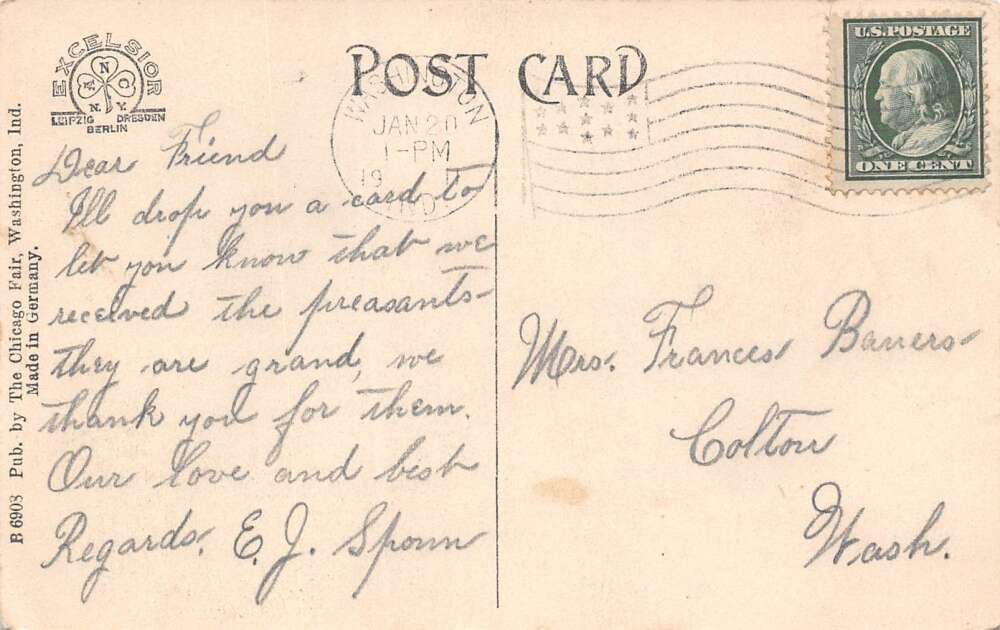 EXCELSIOR
A N C
N.Y.
LEIPZIG DRESDEN
BERLIN
POST CARD
WASHINGTON
JAN 20
1-PM
19 11
IND.
U.S. POSTAGE
ONE CENT
B 6908 Pub. by The Chicago Fair, Washington, Ind.
Made in Germany.
Dear Friend
I'll drop you a card to
let you know that we
received the preasants
they are grand, we
thank you for them.
Our love and best
Regards. E. J. Sponn
Mrs. Frances Bauers
Colton
Wash.